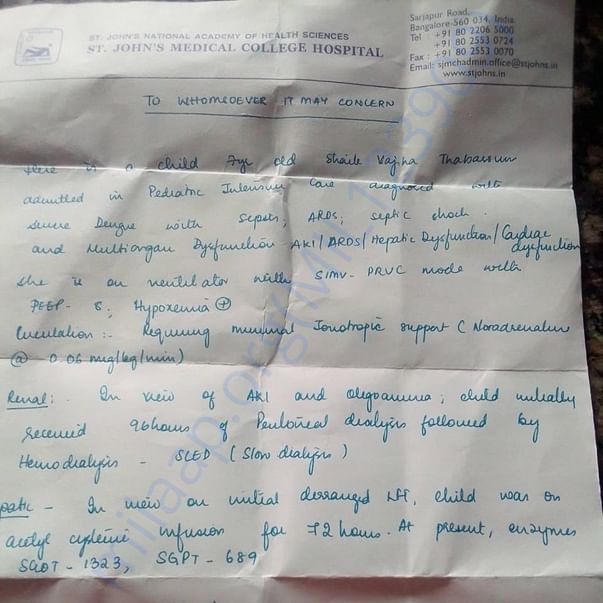 ST. JOHN'S NATIONAL ACADEMY OF HEALTH SCIENCES
ST. JOHN'S MEDICAL COLLEGE HOSPITAL
Sarjapur Road,
Bangalore-560 034, India.
Tel : +91 80 2206 5000
+91 80 2553 0724
Fax : +91 80 2553 0070
Email: sjmchadmin.office@stjohns.in
www.stjohns.in
TO WHOMSOEVER IT MAY CONCERN
Here is a child 7yr old Shaik Vajiha Thabassum
admitted in Pediatric Intensive Care diagnosed with
severe Dengue with sepsis, ARDS, septic shock.
and Multiorgan Dysfunction AKI/ARDS/Hepatic Dysfunction/Cardiac dysfunction
She is on ventilator with SIMV-PRVC mode with
PEEP-8, Hypoxemia +
Circulation :- Requiring minimal Ionotropic support (Noradrenalin
@ 0.06 mcg/kg/min)
Renal :- In view of AKI and oligoanuria, child initially
received 96hours of Peritoneal dialysis followed by
Hemodialysis - SLED (Slow dialysis)
patic - In view on initial derranged LFT, child was on
acetyl cysteine infusion for 72 hours. At present, enzymes
SGOT - 1323, SGPT - 689
milaap.org